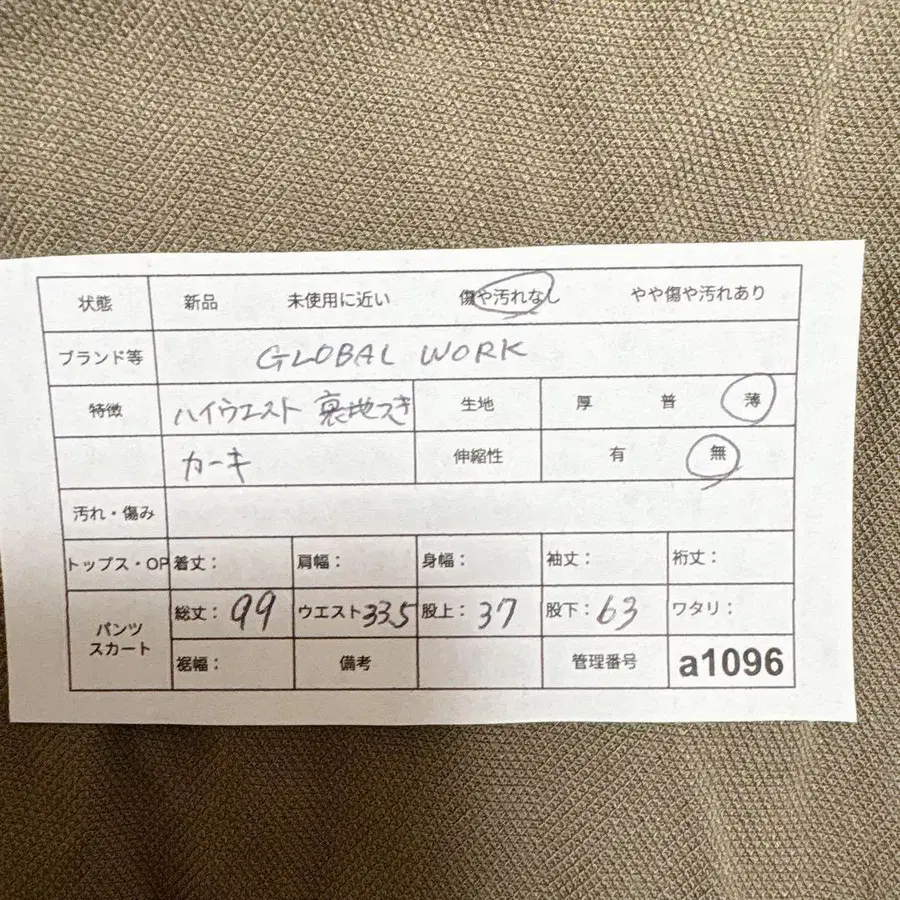 状態 新品 未使用に近い 傷や汚れなし やや傷や汚れあり
ブランド等 GLOBAL WORK
特徴 ハイウエスト 裏地つき 生地 厚 普 薄
カーキ 伸縮性 有 無
汚れ・傷み
トップス・OP 着丈： 肩幅： 身幅： 袖丈： 裄丈：
パンツ スカート 総丈：99 ウエスト33.5 股上：37 股下：63 ワタリ：
裾幅： 備考 管理番号 a1096